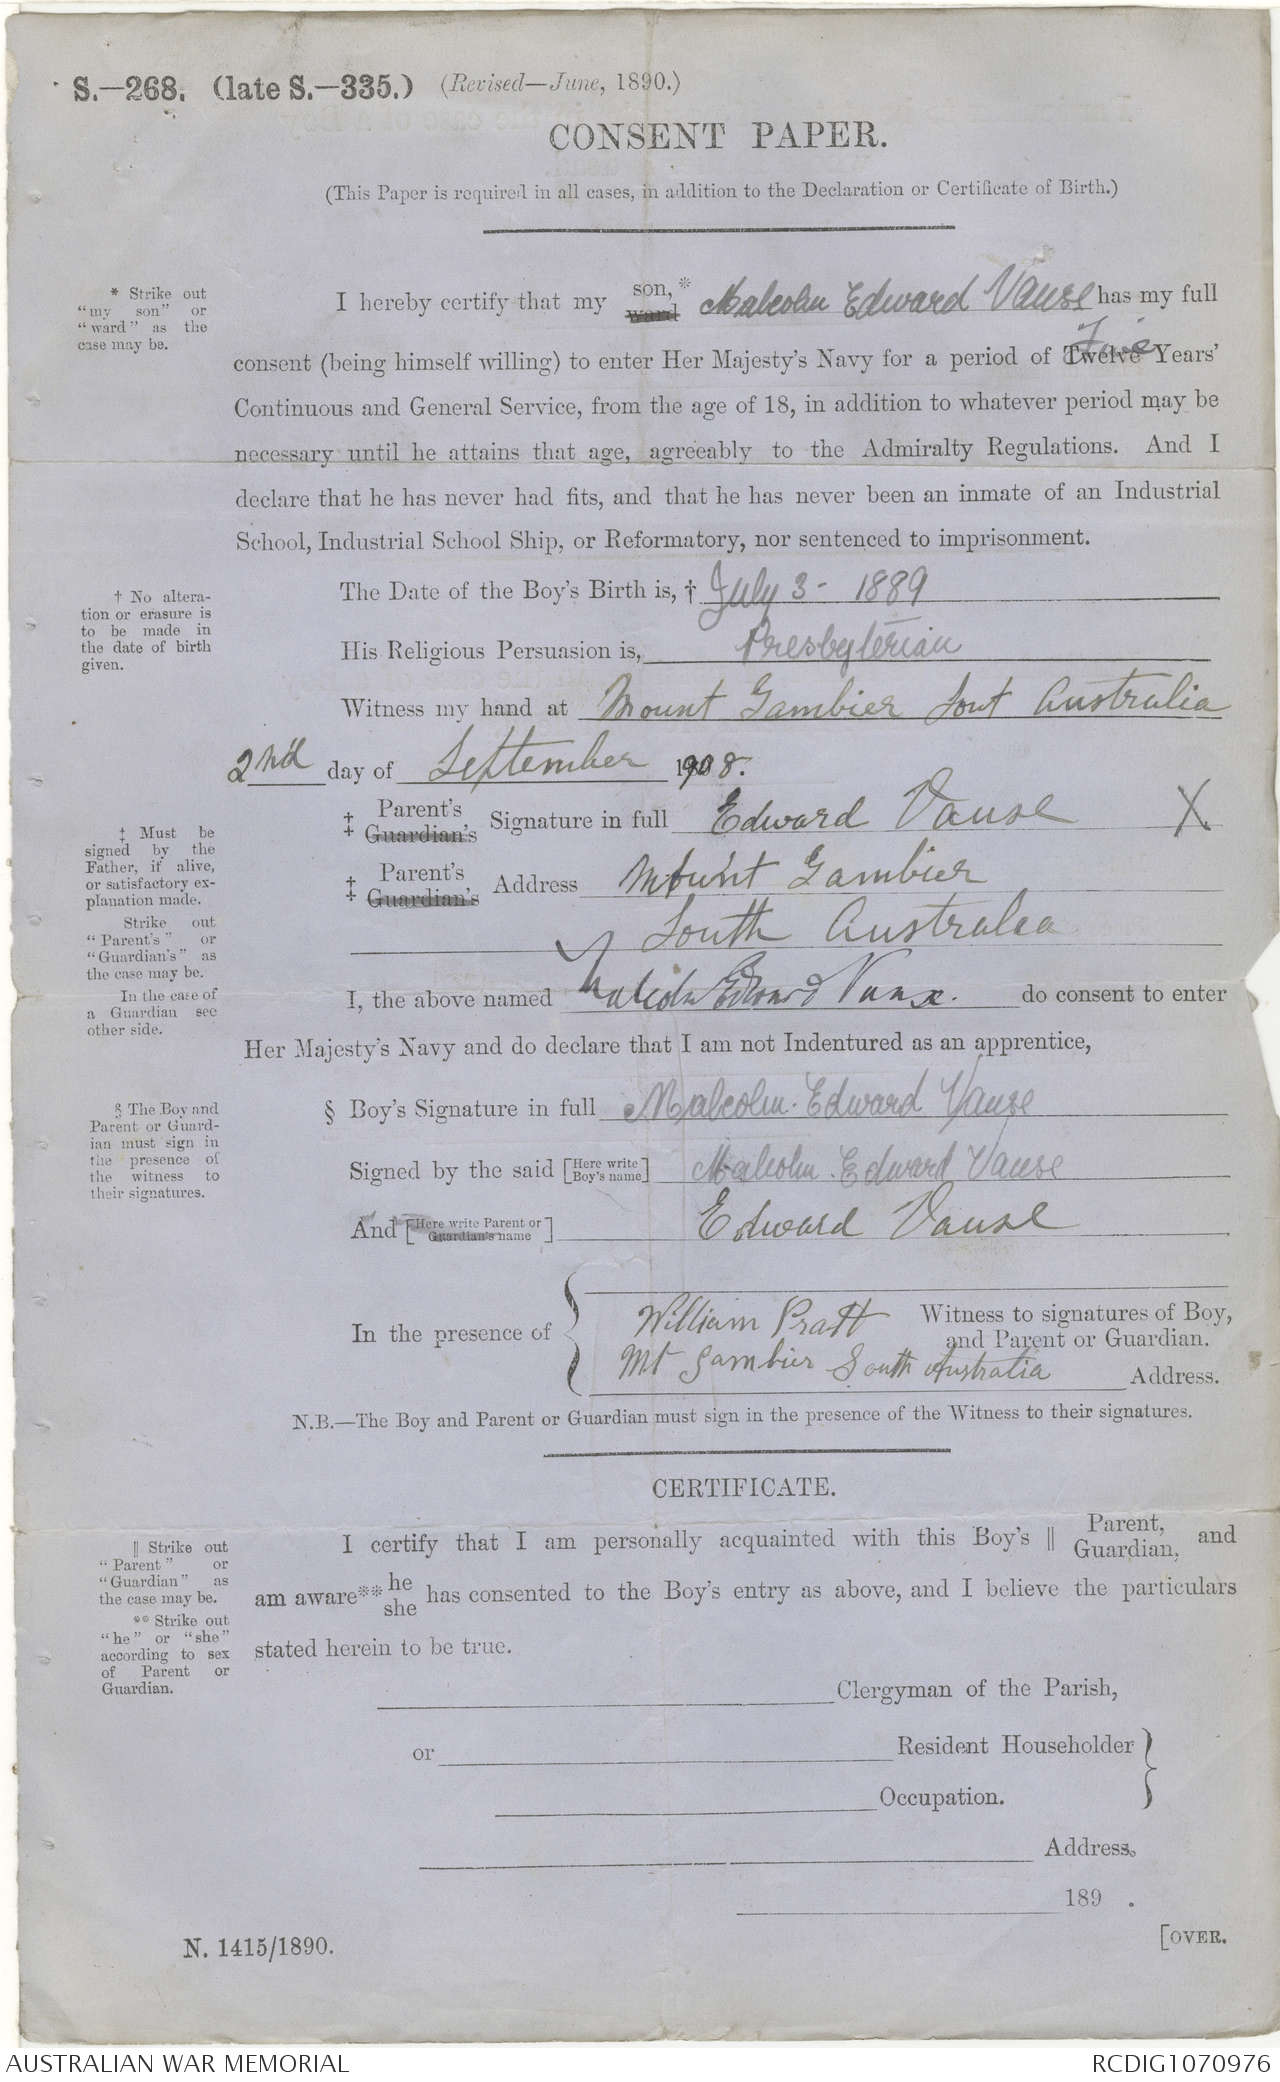 S.—268. (late S.—335.) (Revised—June, 1890.)
CONSENT PAPER.
(This Paper is required in all cases, in addition to the Declaration or Certificate of Birth.)
* Strike out
"my son" or
"ward" as the
case may be.
I hereby certify that my son,* ward Malcolm Edward Vause has my full
consent (being himself willing) to enter Her Majesty's Navy for a period of Twelve Five Years'
Continuous and General Service, from the age of 18, in addition to whatever period may be
necessary until he attains that age, agreeably to the Admiralty Regulations. And I
declare that he has never had fits, and that he has never been an inmate of an Industrial
School, Industrial School Ship, or Reformatory, nor sentenced to imprisonment.
† No altera-
tion or erasure is
to be made in
the date of birth
given.
The Date of the Boy's Birth is, † July 3 - 1889
His Religious Persuasion is, Presbyterian
Witness my hand at Mount Gambier Sout Australia
2nd day of September 1908.
‡ Must be
signed by the
Father, if alive,
or satisfactory ex-
planation made.
Strike out
"Parent's" or
"Guardian's" as
the case may be.
In the case of
a Guardian see
other side.
‡ Parent's Guardian's Signature in full Edward Vause X
‡ Parent's Guardian's Address Mount Gambier
South Australia
I, the above named Malcolm Edward Vause. do consent to enter
Her Majesty's Navy and do declare that I am not Indentured as an apprentice,
§ The Boy and
Parent or Guard-
ian must sign in
the presence of
the witness to
their signatures.
§ Boy's Signature in full Malcolm. Edward Vause
Signed by the said [Here write Boy's name] Malcolm. Edward Vause
And [Here write Parent or Guardian's name] Edward Vause
In the presence of William Pratt Witness to signatures of Boy,
and Parent or Guardian.
Mt Gambier South Australia Address.
N.B.—The Boy and Parent or Guardian must sign in the presence of the Witness to their signatures.
CERTIFICATE.
‖ Strike out
"Parent" or
"Guardian" as
the case may be.
** Strike out
"he" or "she"
according to sex
of Parent or
Guardian.
I certify that I am personally acquainted with this Boy's ‖ Parent, Guardian, and
am aware** he she has consented to the Boy's entry as above, and I believe the particulars
stated herein to be true.
Clergyman of the Parish,
or Resident Householder
Occupation.
Address.
189 .
N. 1415/1890.
[OVER.
AUSTRALIAN WAR MEMORIAL
RCDIG1070976